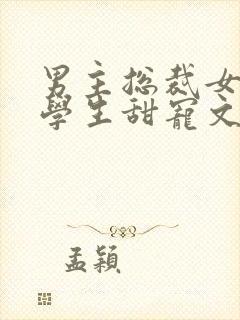 男主总裁女
學生甜寵文
孟穎